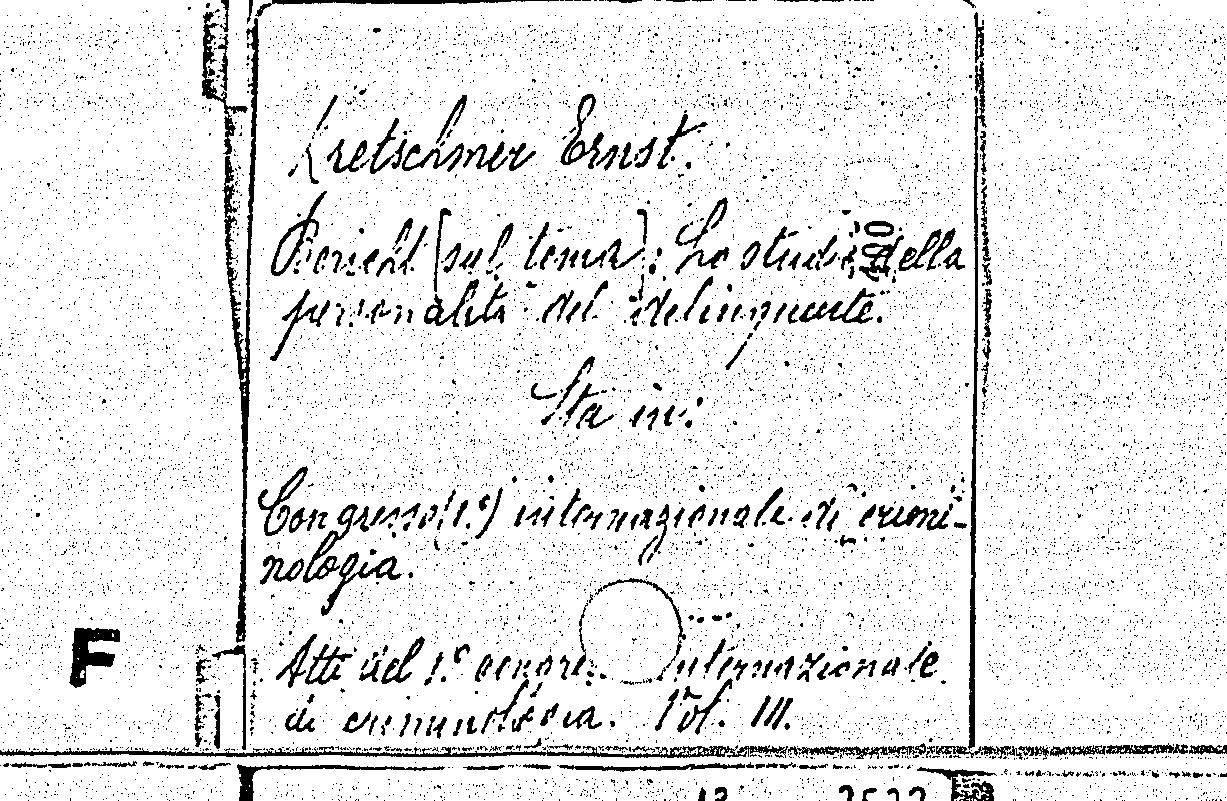 Kretschmer Ernst.
Bericht [sul tema]: Lo studio della
personalità del delinquente.
Sta in:
Congresso (1.º) internazionale di crimi-
nologia.
F
Atti del 1.º congre. internazionale
di criminologia. Vol. III.